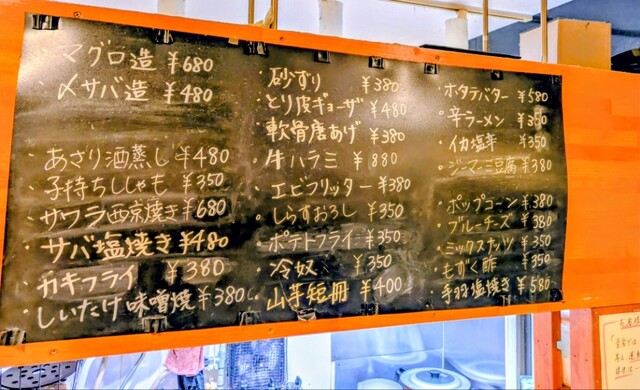 マグロ造 ¥680
〆サバ造 ¥480
・あさり酒蒸し ¥480
・子持ちししゃも ¥350
・サワラ西京焼き ¥680
・サバ塩焼き ¥480
・カキフライ ¥380
・しいたけ味噌焼 ¥380
・砂ずり ¥380
・とり皮ギョーザ ¥480
・軟骨唐あげ ¥380
・牛ハラミ ¥880
・エビフリッター ¥380
・しらすおろし ¥350
・ポテトフライ ¥350
・冷奴 ¥350
・山芋短冊 ¥400
・ホタテバター ¥580
・辛ラーメン ¥350
・イカ塩辛 ¥350
・ジーマーミ豆腐 ¥380
・ポップコーン ¥380
・ブルーチーズ ¥380
・ミックスナッツ ¥350
・もずく酢 ¥350
・手羽塩焼き ¥580